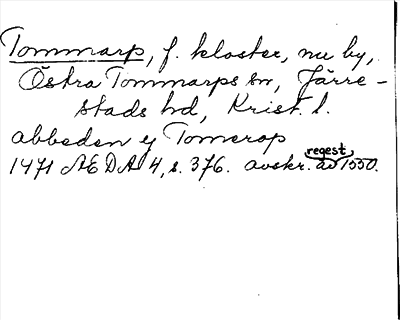 Tommarp, f. kloster, nu by,
Östra Tommarps sn, Järre-
stads hd, Krist. l.
abbeden y Tomerop
1471 ÆDA 4, s. 376. avskr. av regest, 1550.